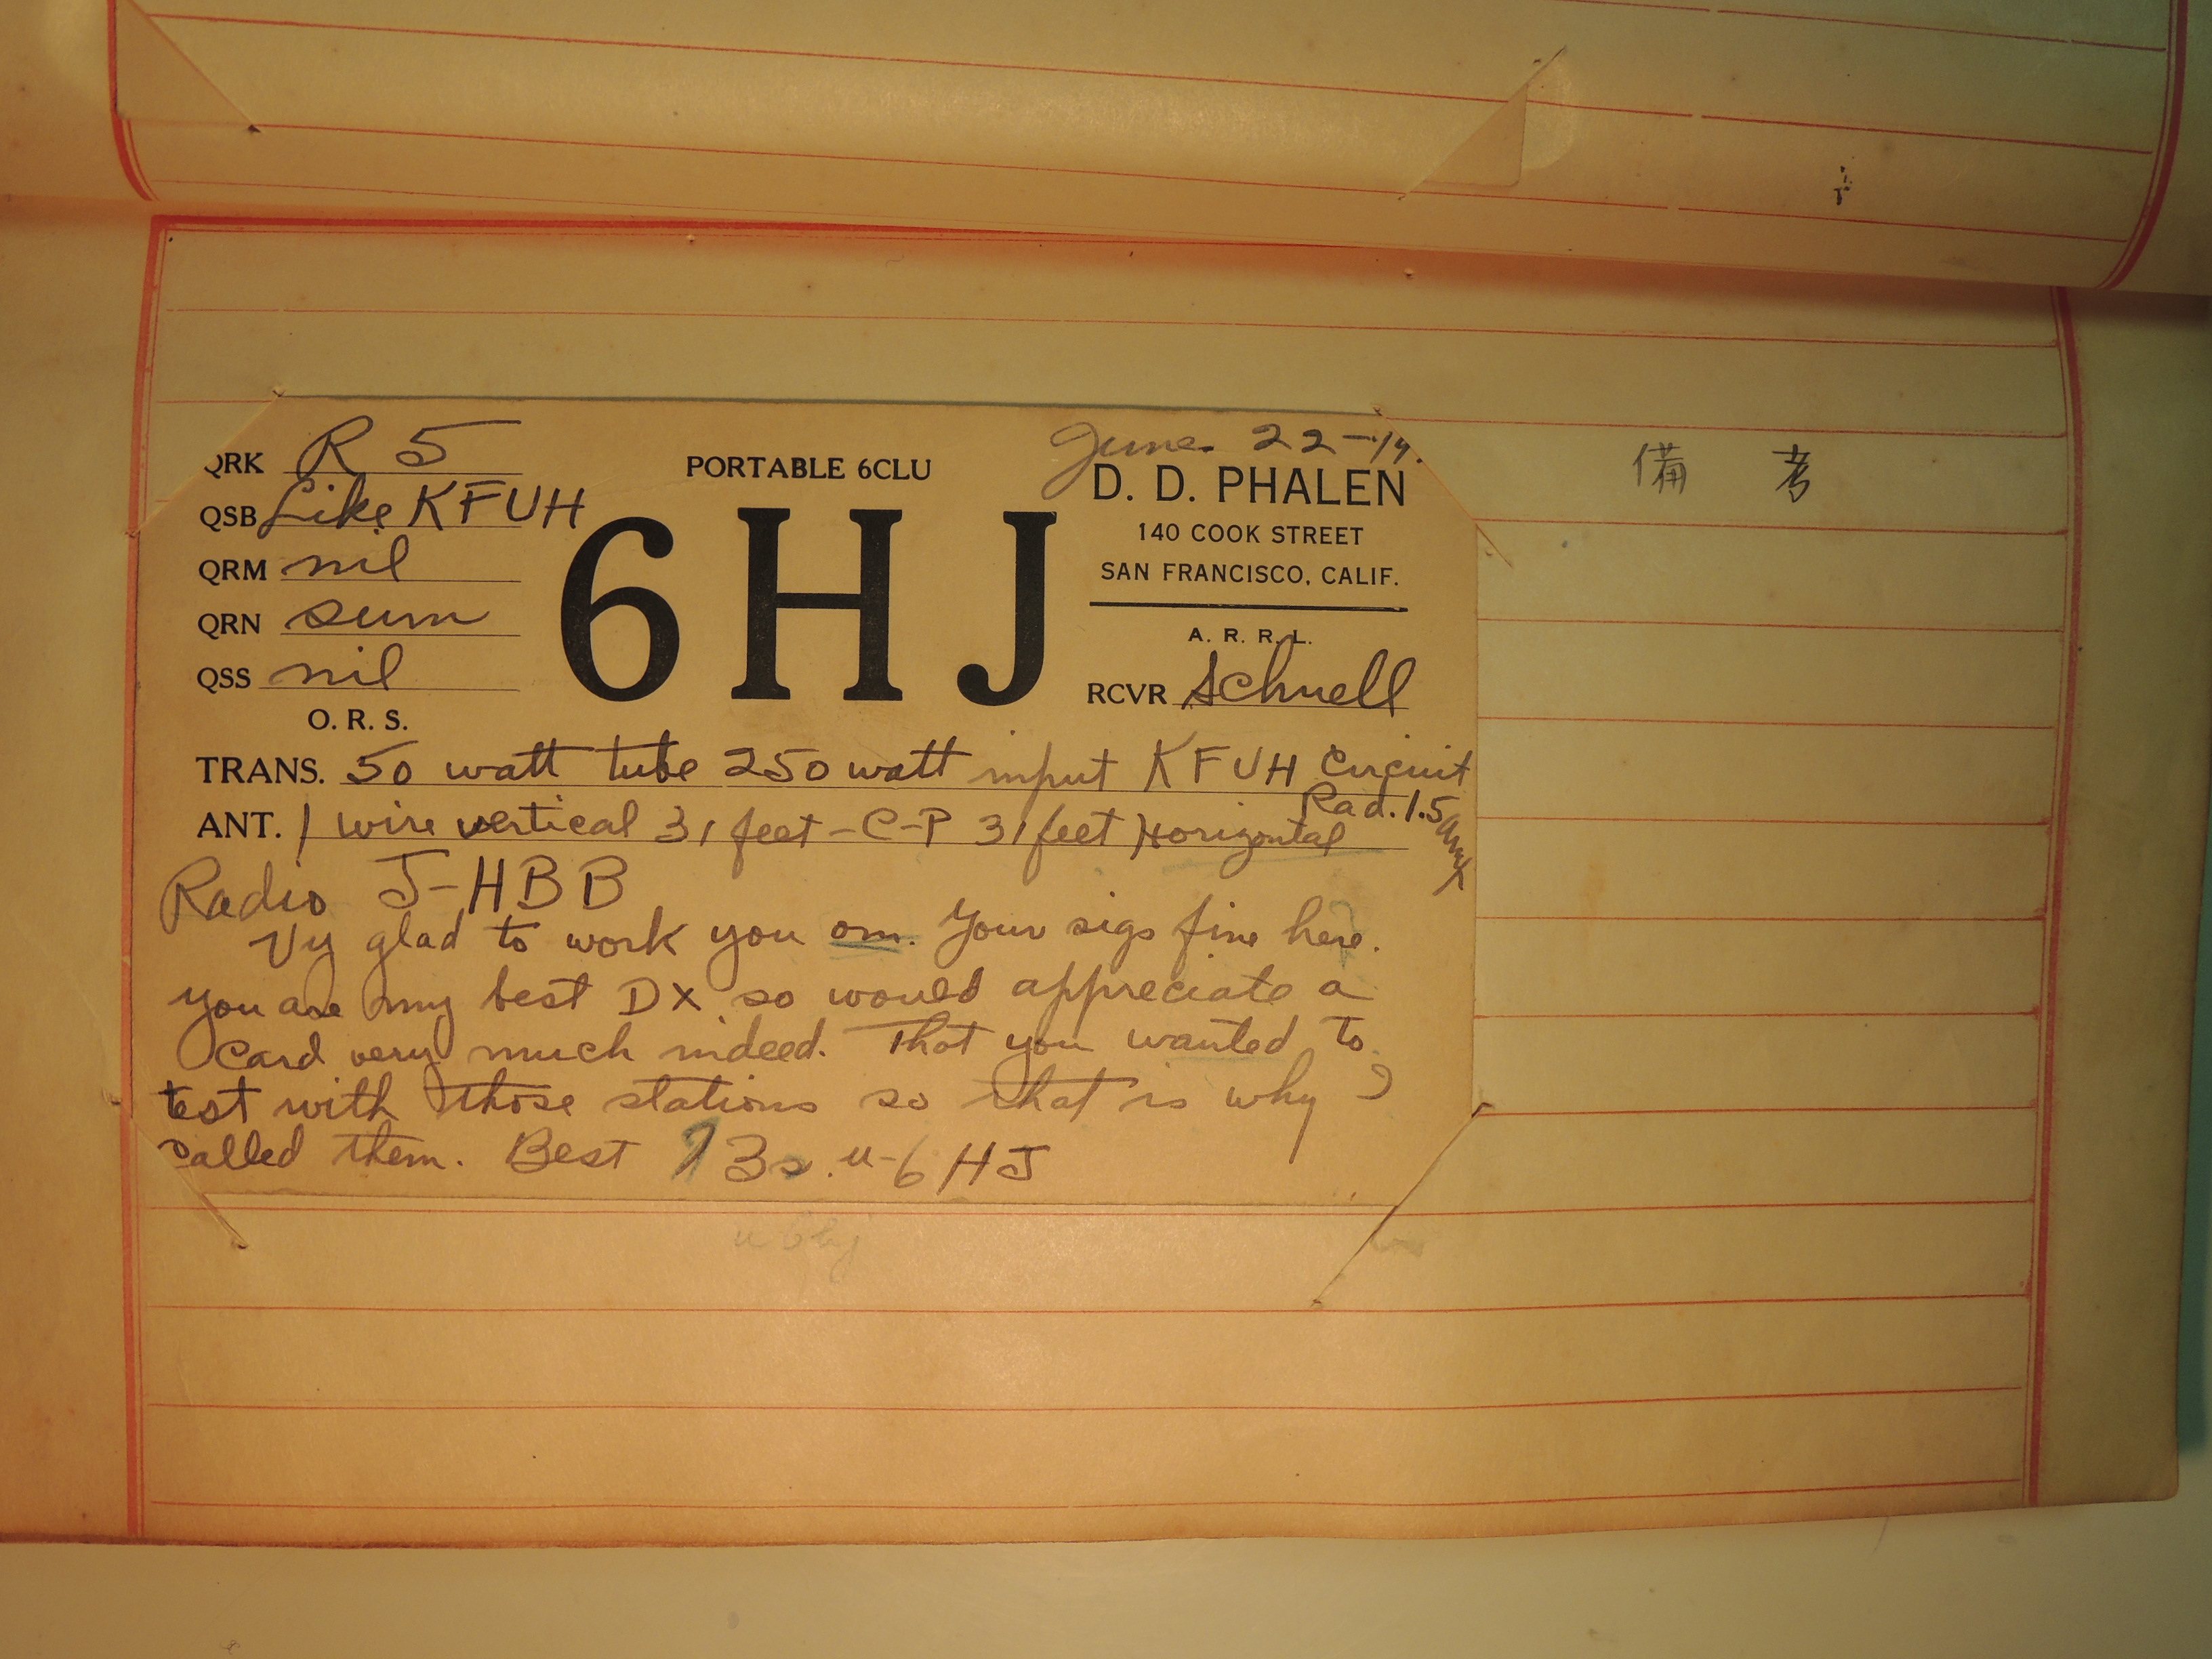 QRK R 5
QSB Like KFUH
QRM nil
QRN sum
QSS nil
O. R. S.
PORTABLE 6CLU
6HJ
June 22
D. D. PHALEN
140 COOK STREET
SAN FRANCISCO, CALIF.
A. R. R. L.
RCVR Schnell
TRANS. 50 watt tube 250 watt input KFUH Circuit
Rad. 1.5 amp
ANT. 1 wire vertical 31 feet - C-P 31 feet Horizontal
Radio J-HBB
Vy glad to work you om. Your sigs fine here.
You are my best DX so would appreciate a
Card very much indeed. That you wanted to
test with those stations so that is why I
called them. Best 73s. u-6HJ
備 考
u 6hj